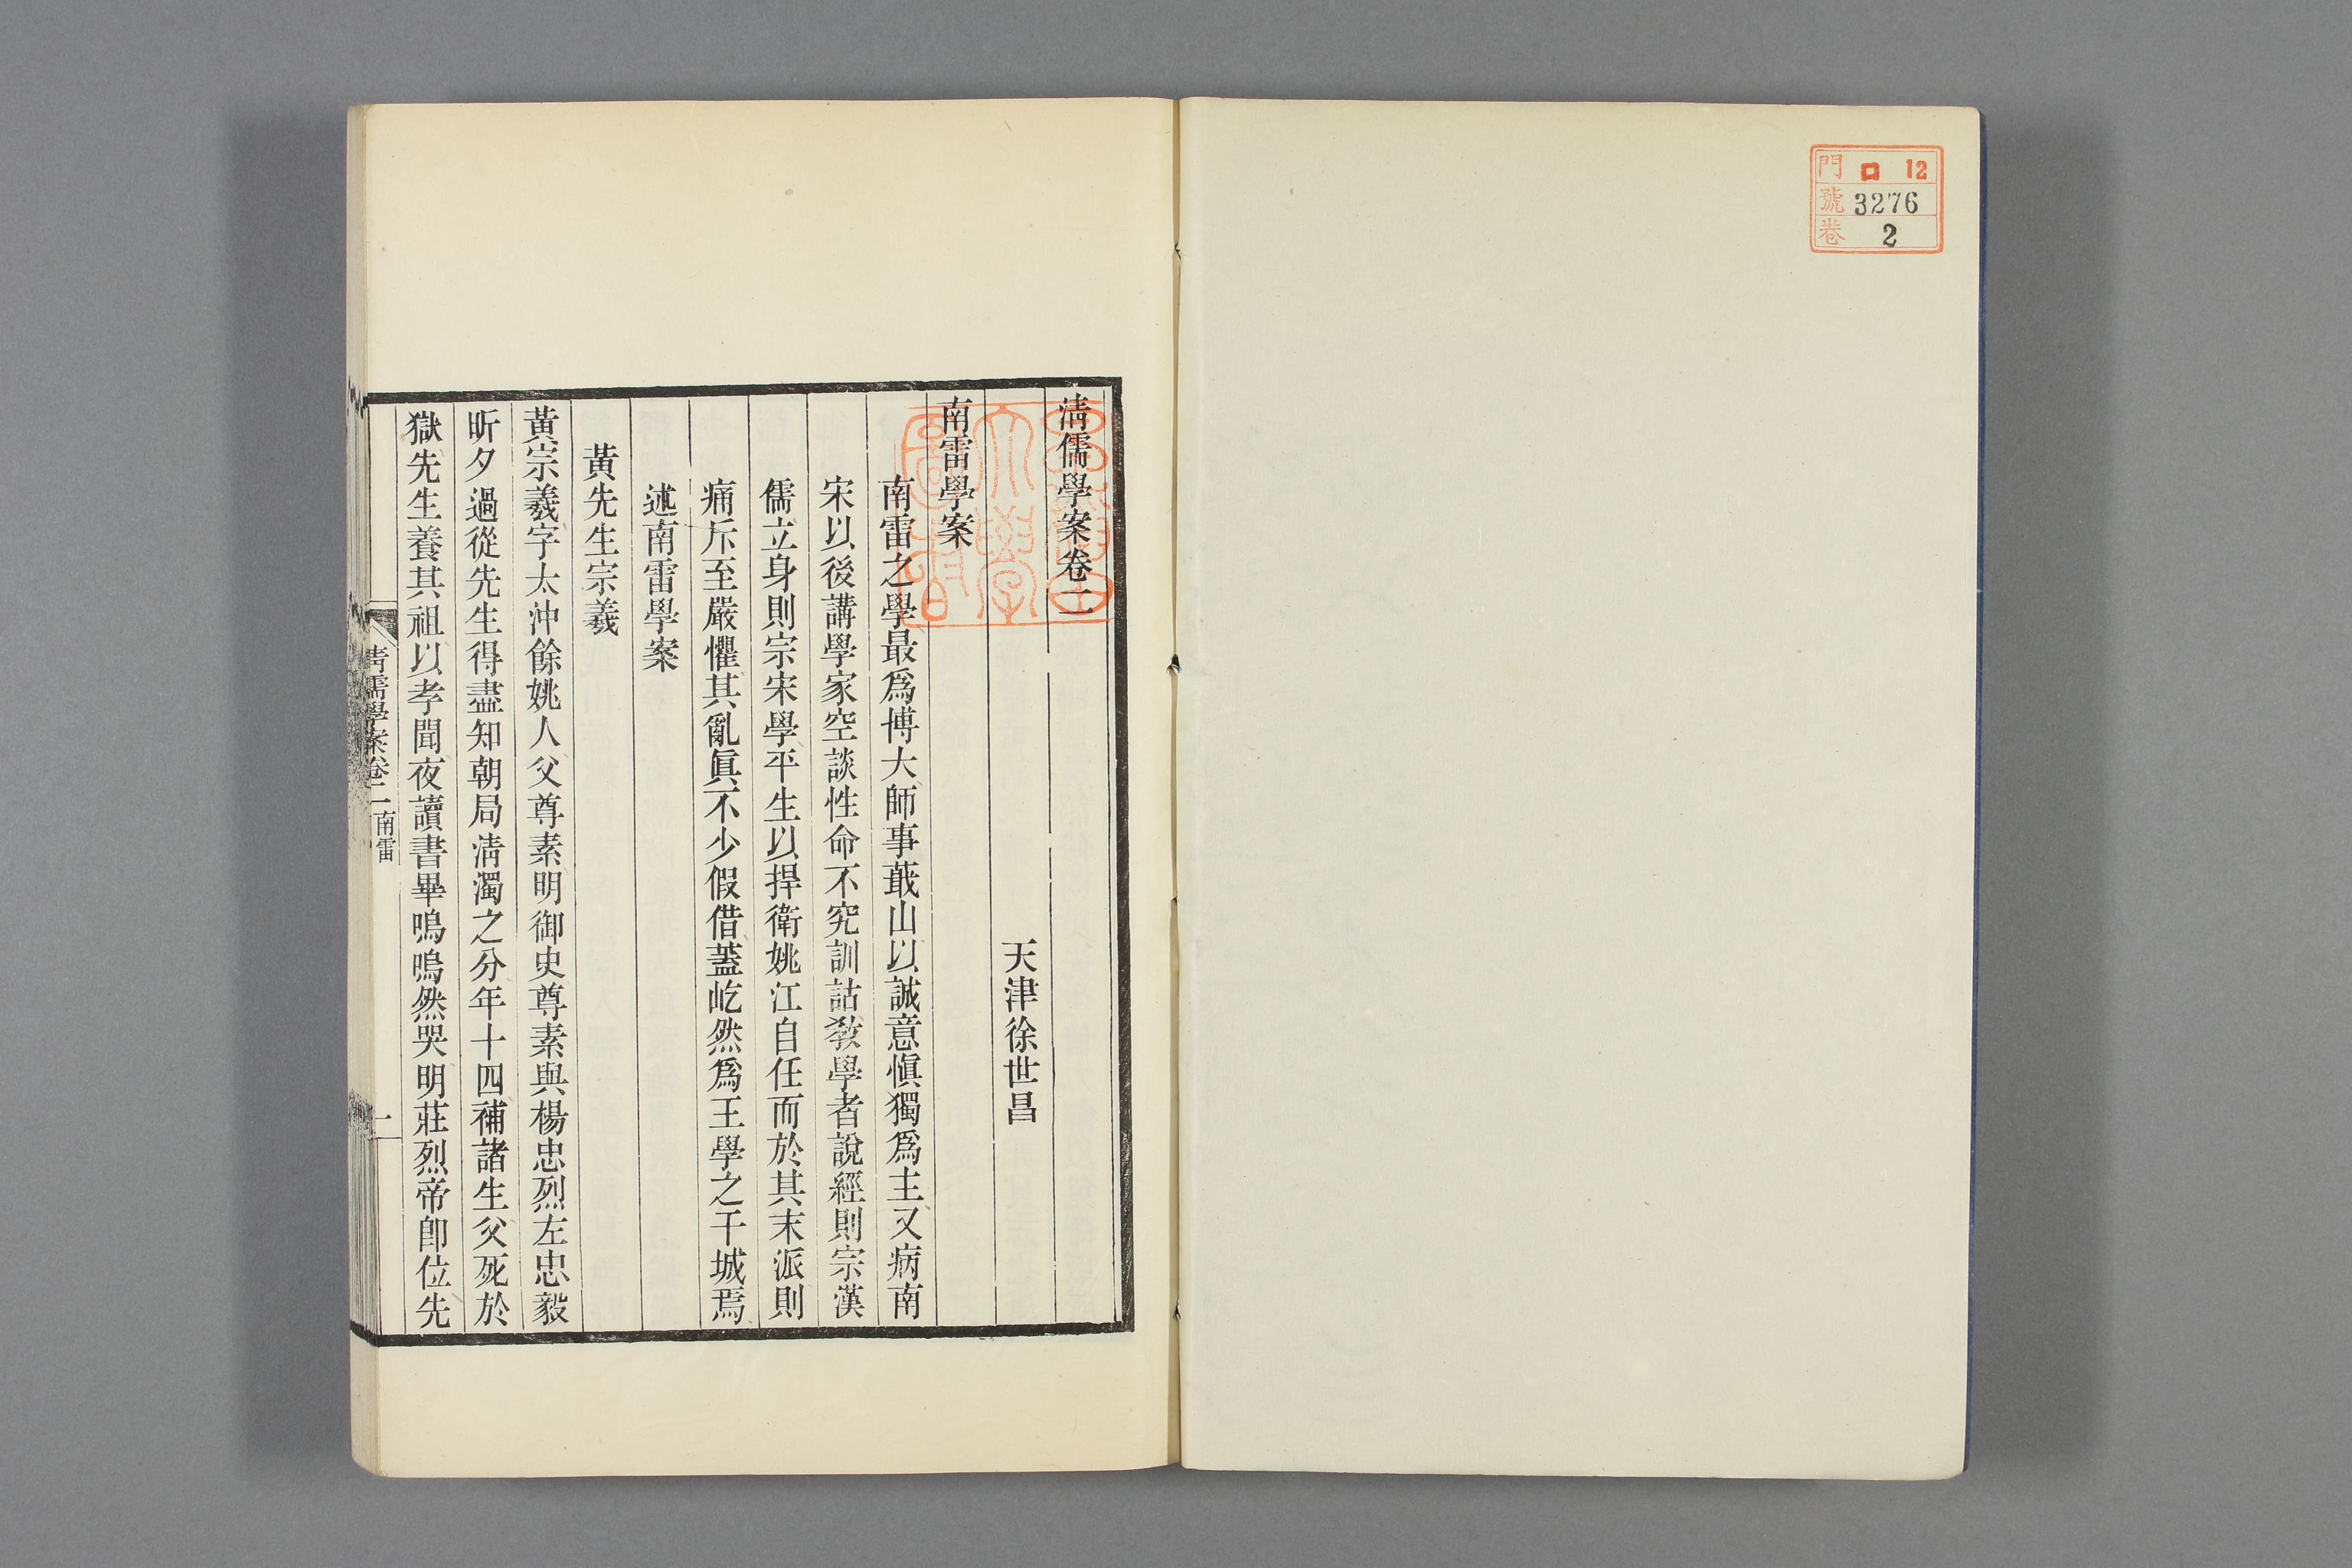 門 ロ 12
號 3276
卷 2
清儒學案卷二
天津徐世昌
南雷學案
南雷之學最爲博大師事蕺山以誠意愼獨爲主又病南
宋以後講學家空談性命不究訓詁敎學者說經則宗漢
儒立身則宗宋學平生以捍衛姚江自任而於其末派則
痛斥至嚴懼其亂眞不少假借蓋屹然爲王學之干城焉
述南雷學案
黃先生宗羲
黃宗羲字太沖餘姚人父尊素明御史尊素與楊忠烈左忠毅
昕夕過從先生得盡知朝局清濁之分年十四補諸生父死於
獄先生養其祖以孝聞夜讀書畢嗚嗚然哭明莊烈帝卽位先
清儒學案卷二 南雷 一